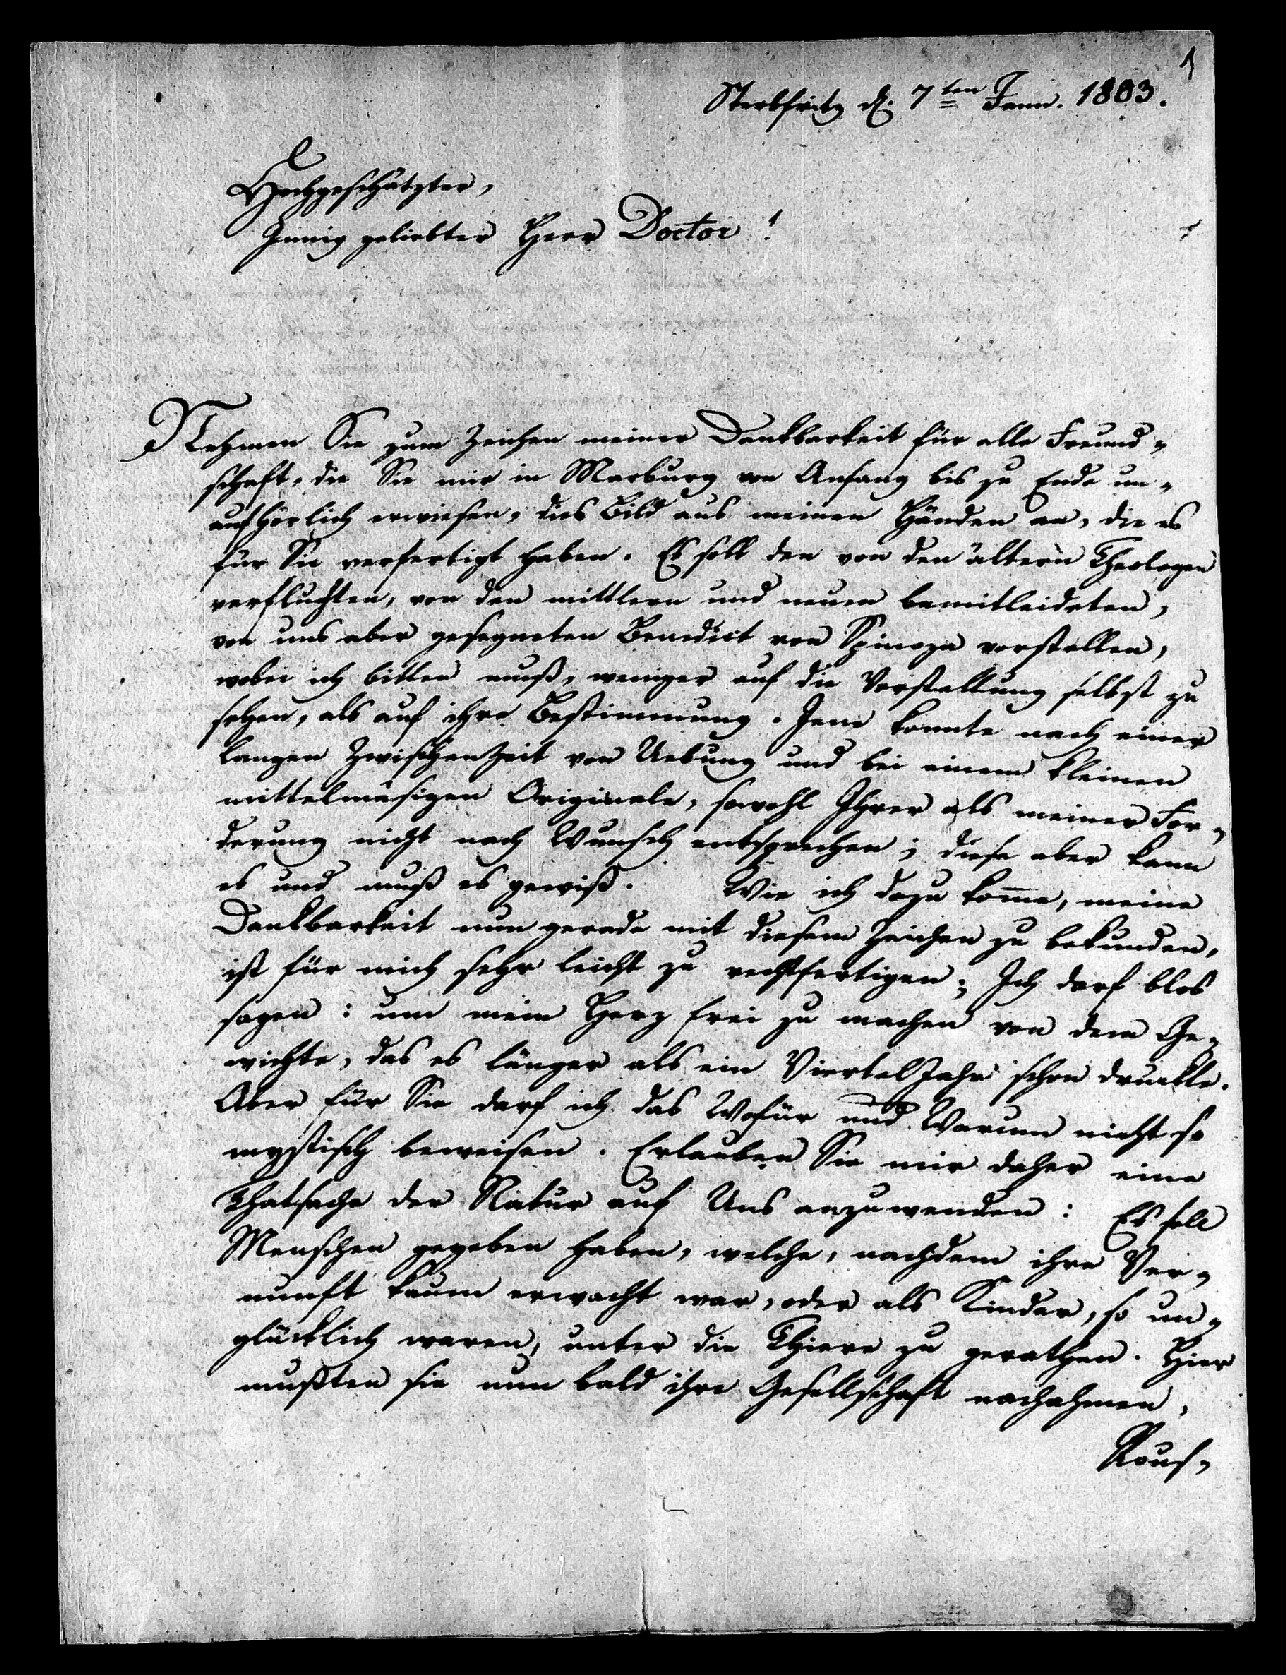 1
Sterbfritz d. 7ten Jann. 1803.
Hochgeschätzter,
Innig geliebter Herr Doctor!
Nehmen Sie zum Zeichen meiner Dankbarkeit für alle Freund-
schaft, die Sie mir in Marburg von Anfang bis zu Ende un-
aufhörlich erwiesen, dies Bild aus meinen Händen an, die es
für Sie verfertigt haben. Es soll den von den ältern Theologen
verfluchten, von den mittlern und neuen bemitleideten,
von uns aber gesegneten Benedict von Spinoza vorstellen,
wobei ich bitten muß, weniger auf die Vorstellung selbst zu
sehen, als auf ihre Bestimmung. Jene konnte nach einer
langen Zwischenzeit von Uebung und bei einem kleinen
mittelmäsigen Originale, sowohl Ihrer als meiner For-
derung nicht nach Wunsch entsprechen; diese aber kann
es und muß es gewiß. Wie ich dazu kom̄e, meine
Dankbarkeit nun gerade mit diesem Zeichen zu bekunden,
ist für mich sehr leicht zu rechtfertigen; Ich darf blos
sagen: um mein Herz frei zu machen von dem Ge-
wichte, das es länger als ein Viertel Jahr schon druckte.
Aber für Sie darf ich das Wofür und Warum nicht so
mystisch beweisen. Erlauben Sie mir daher eine
Thatsache der Natur auf Uns anzuwenden: Es soll
Menschen gegeben haben, welche, nachdem ihre Ver-
nunft kaum erwacht war, oder als Kinder, so un-
glücklich waren, unter die Thiere zu gerathen. Hier
mußten sie nun bald ihre Gesellschaft nachahmen,
Rous-